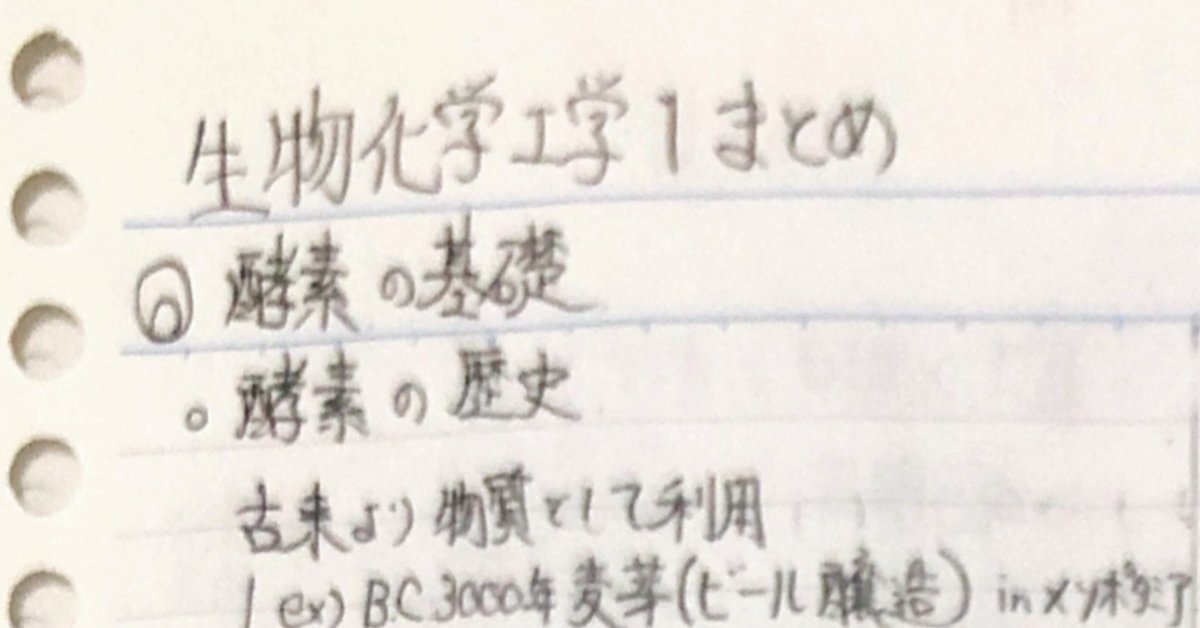 生物化学工学1まとめ
◎ 酵素の基礎
○ 酵素の歴史
古来より物質として利用
ex) B.C.3000年麦芽(ビール醸造) in メソポタミア